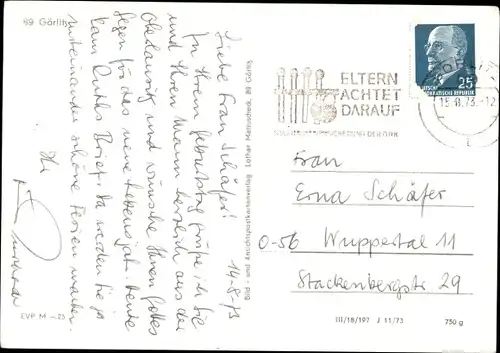 89 Görlitz
14.8.73
Liebe Frau Schäfer!
Zu Ihrem Geburtstag grüße ich Sie
und Ihren Mann herzlich aus der
Oberlausitz und wünsche Ihnen Gottes
Segen für das neue Lebensjahr. Heute
kam Ruths Brief. Da werden Sie ja
miteinander schöne Ferien machen.
Ihr
EVP M –.25
Bild- und Ansichtspostkartenverlag Lothar 89 Görlitz
ELTERN
ACHTET
DARAUF
25
DEUTSCHE
DEMOKRATISCHE REPUBLIK
Frau
Erna Schäfer
0-56 Wuppertal 11
Stackenbergstr 29
III/18/197 J 11/73
750 g